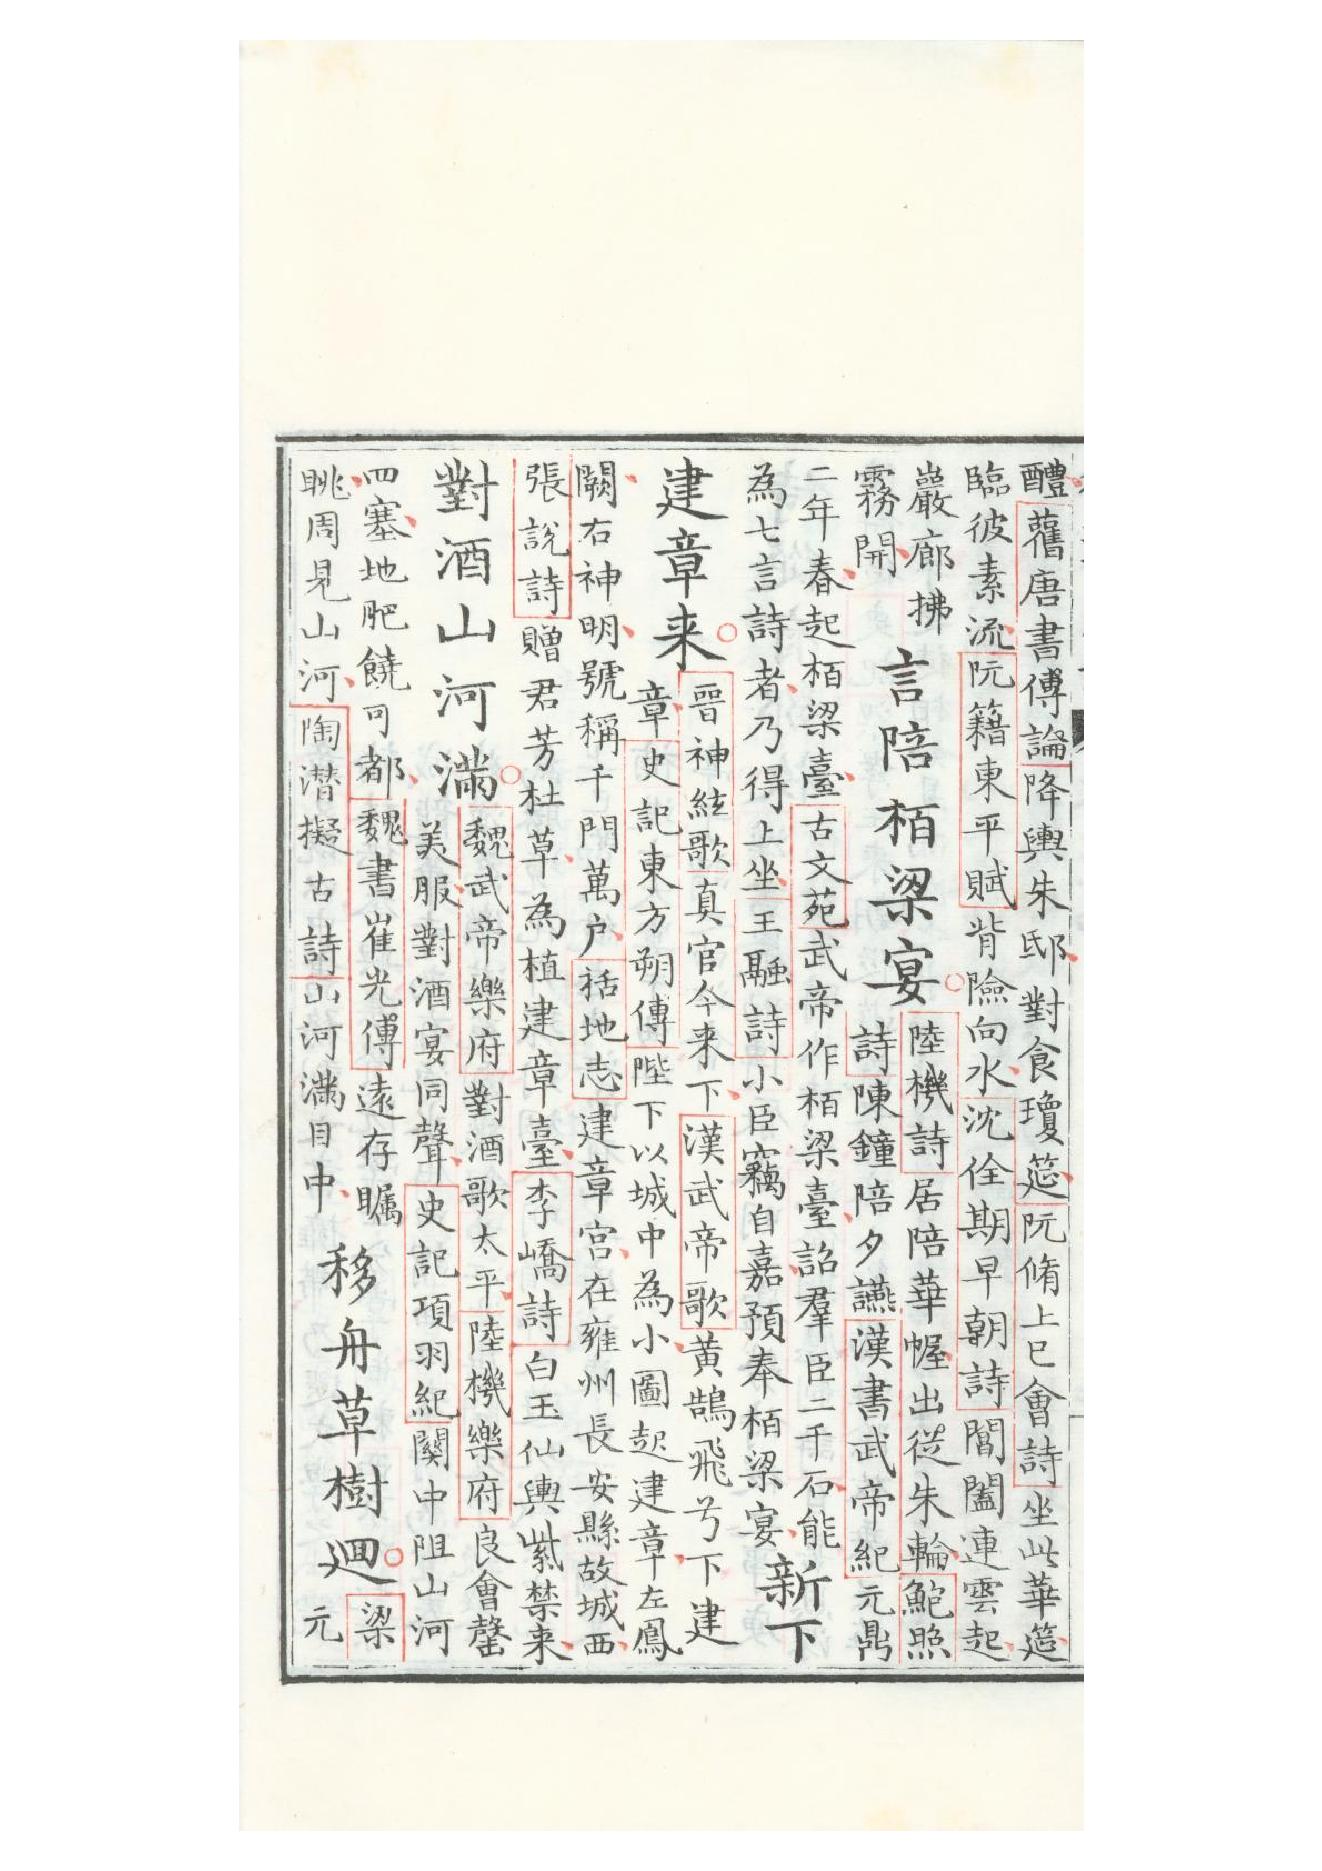 醴舊唐書傅論降輿朱邸對食瓊筵阮脩上巳會詩坐此華筵
臨彼素流阮籍東平賦背險向水沈佺期早朝詩閶闔連雲起
巖廊拂
霧開
言陪栢梁宴
陸機詩居陪華幄出從朱輪鮑照
詩陳鐘陪夕讌漢書武帝紀元鼎
二年春起栢梁臺古文苑武帝作栢梁臺詔羣臣二千石能
為七言詩者乃得上坐王融詩小臣竊自嘉預奉栢梁宴
新下
建章来
晉神絃歌真官今来下漢武帝歌黃鵠飛兮下建
章史記東方朔傳陛下以城中為小圖起建章左鳳
闕右神明號稱千門萬户括地志建章宮在雍州長安縣故城西
張說詩贈君芳杜草為植建章臺李嶠詩白玉仙輿紫禁来
對酒山河滿
魏武帝樂府對酒歌太平陸機樂府良會罄
美服對酒宴同聲史記項羽紀關中阻山河
四塞地肥饒可都魏書崔光傅遠存矚
眺周見山河陶潛擬古詩山河滿目中
移舟草樹迴
梁
元